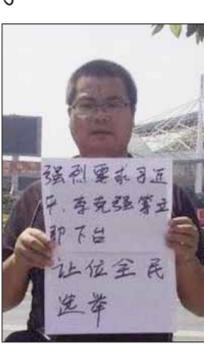 强烈要求习近
平、李克强等立
即下台
让位全民
选举